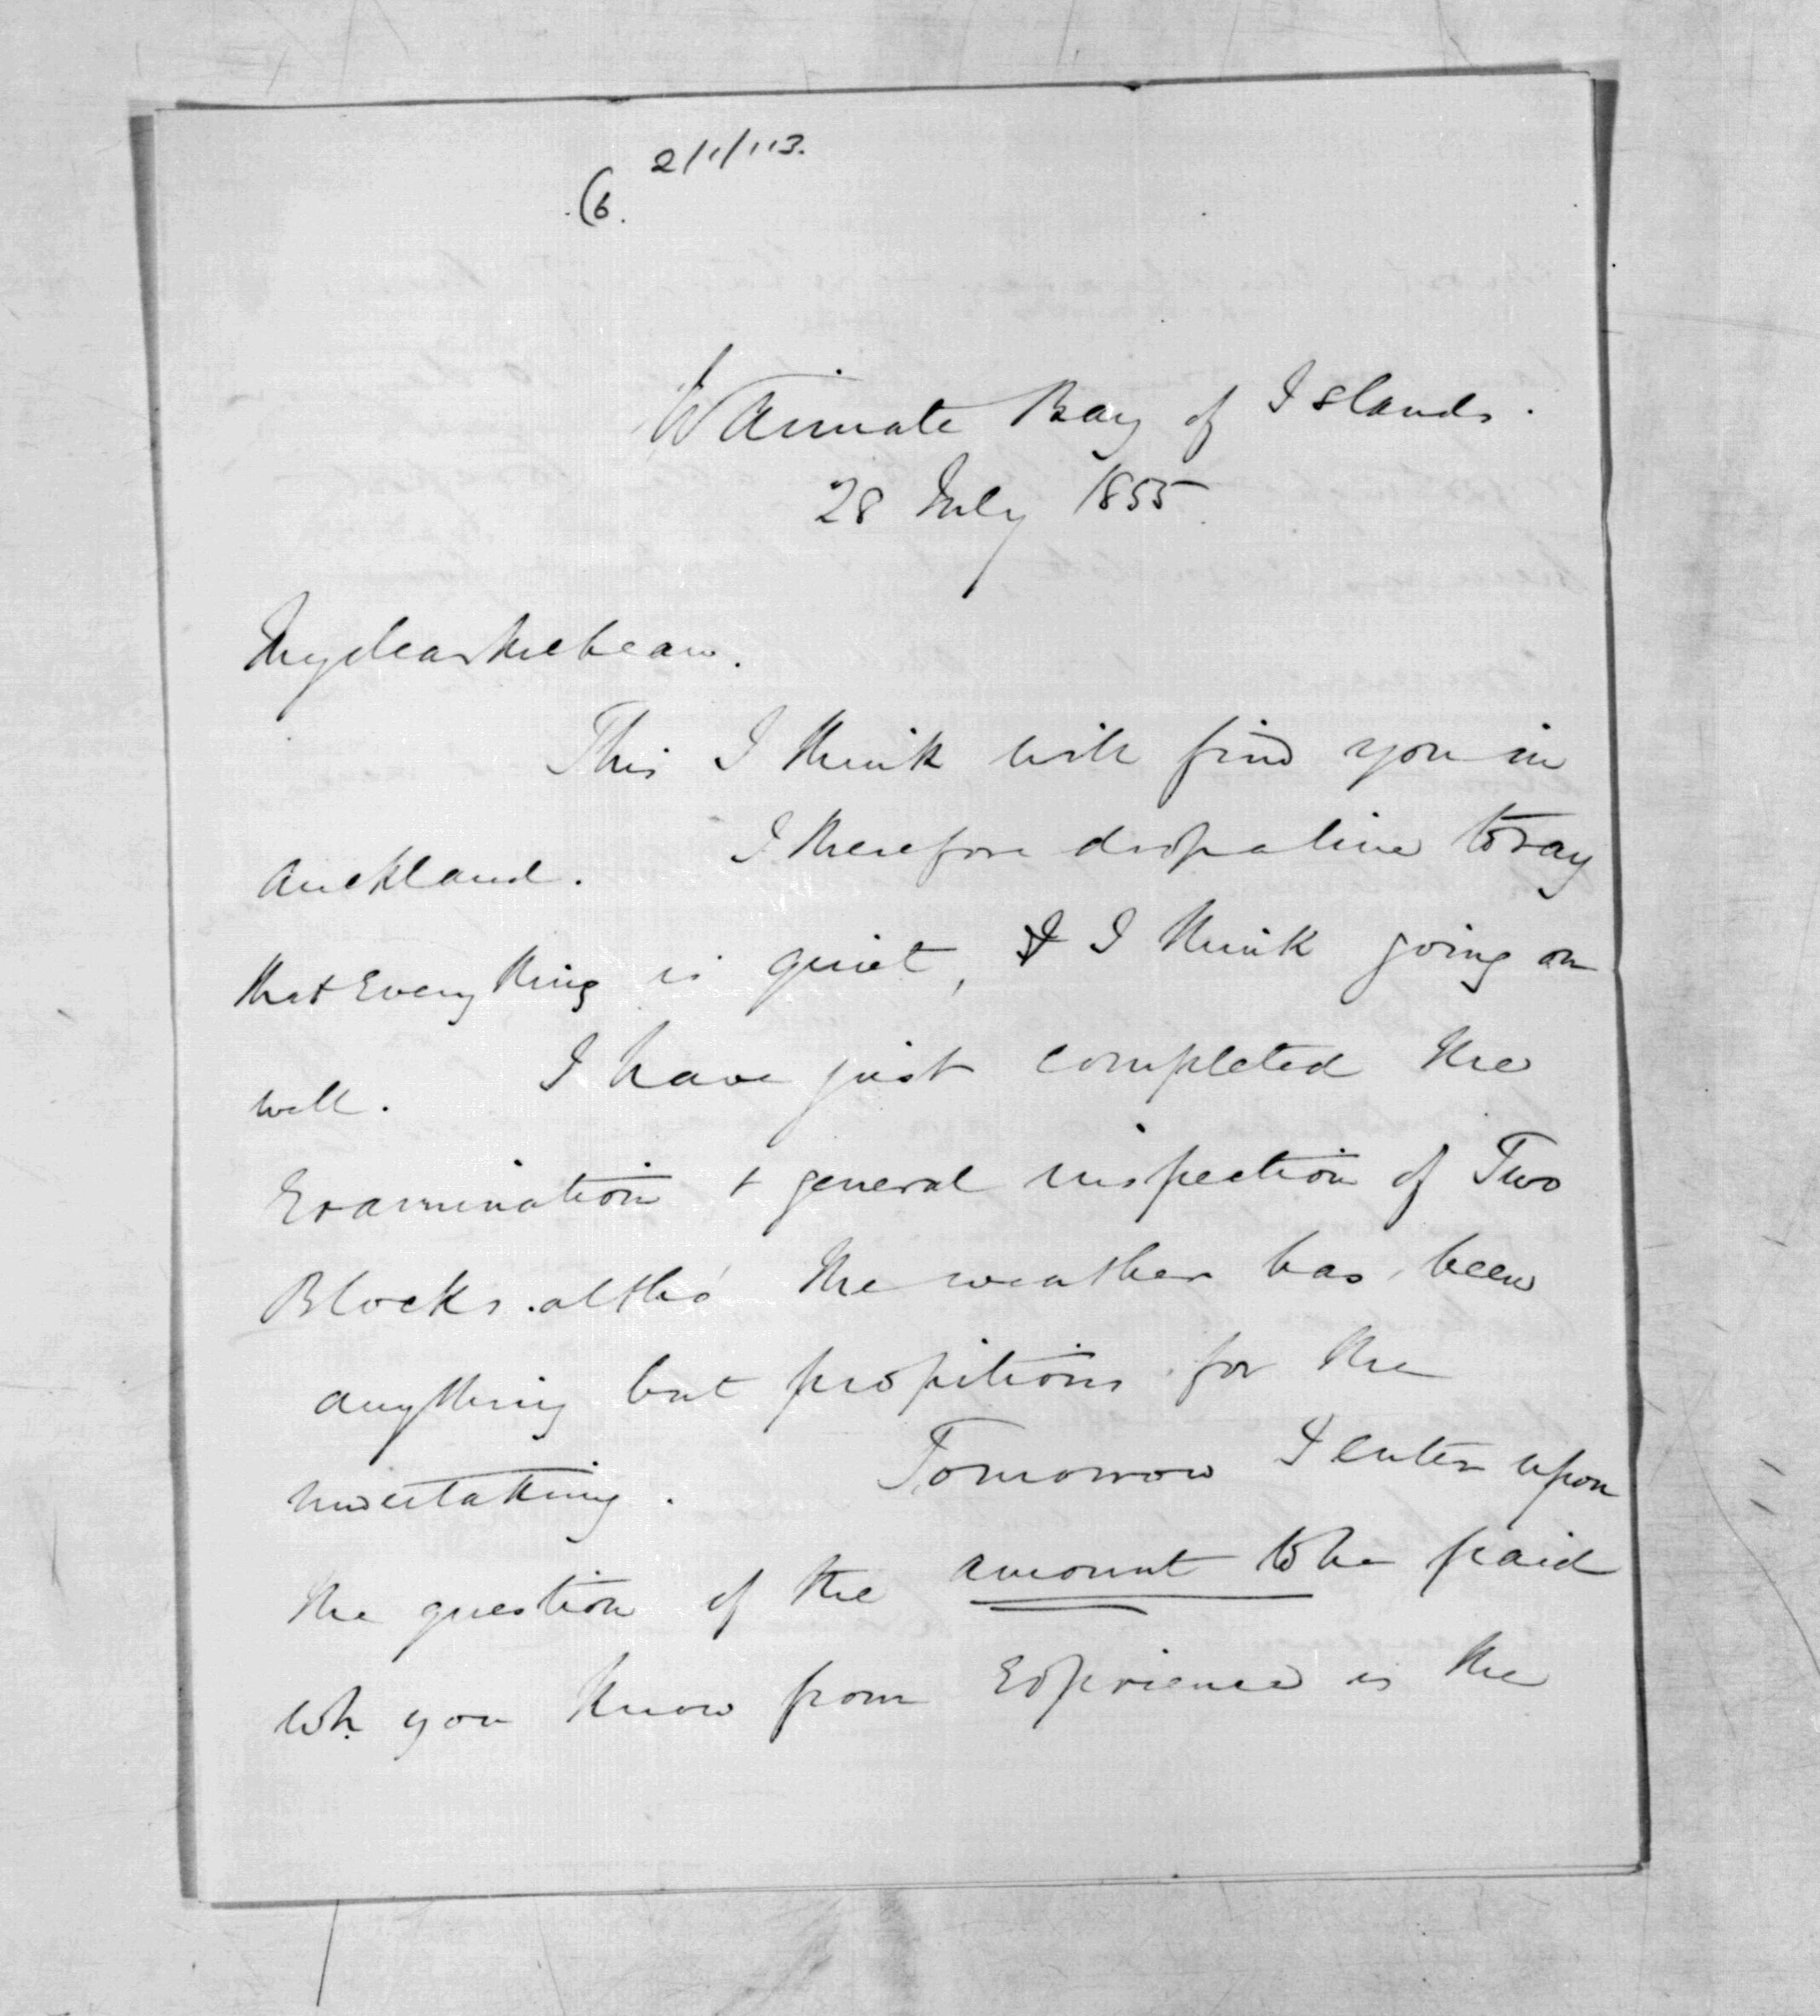 2/1/113.
(6.
Waimate Bay of Islands.
28 July 1855
My dear McLean.
This I think will find you in
Auckland. I therefore drop a line to say
that Everything is quiet, & I think going on
well. I have just completed the
Examination + general inspection of Two
Blocks. altho' the weather has been
anything but propitious for the
undertaking. Tomorrow I enter upon
the question of the amount to be paid
wh. you know from Experience is the